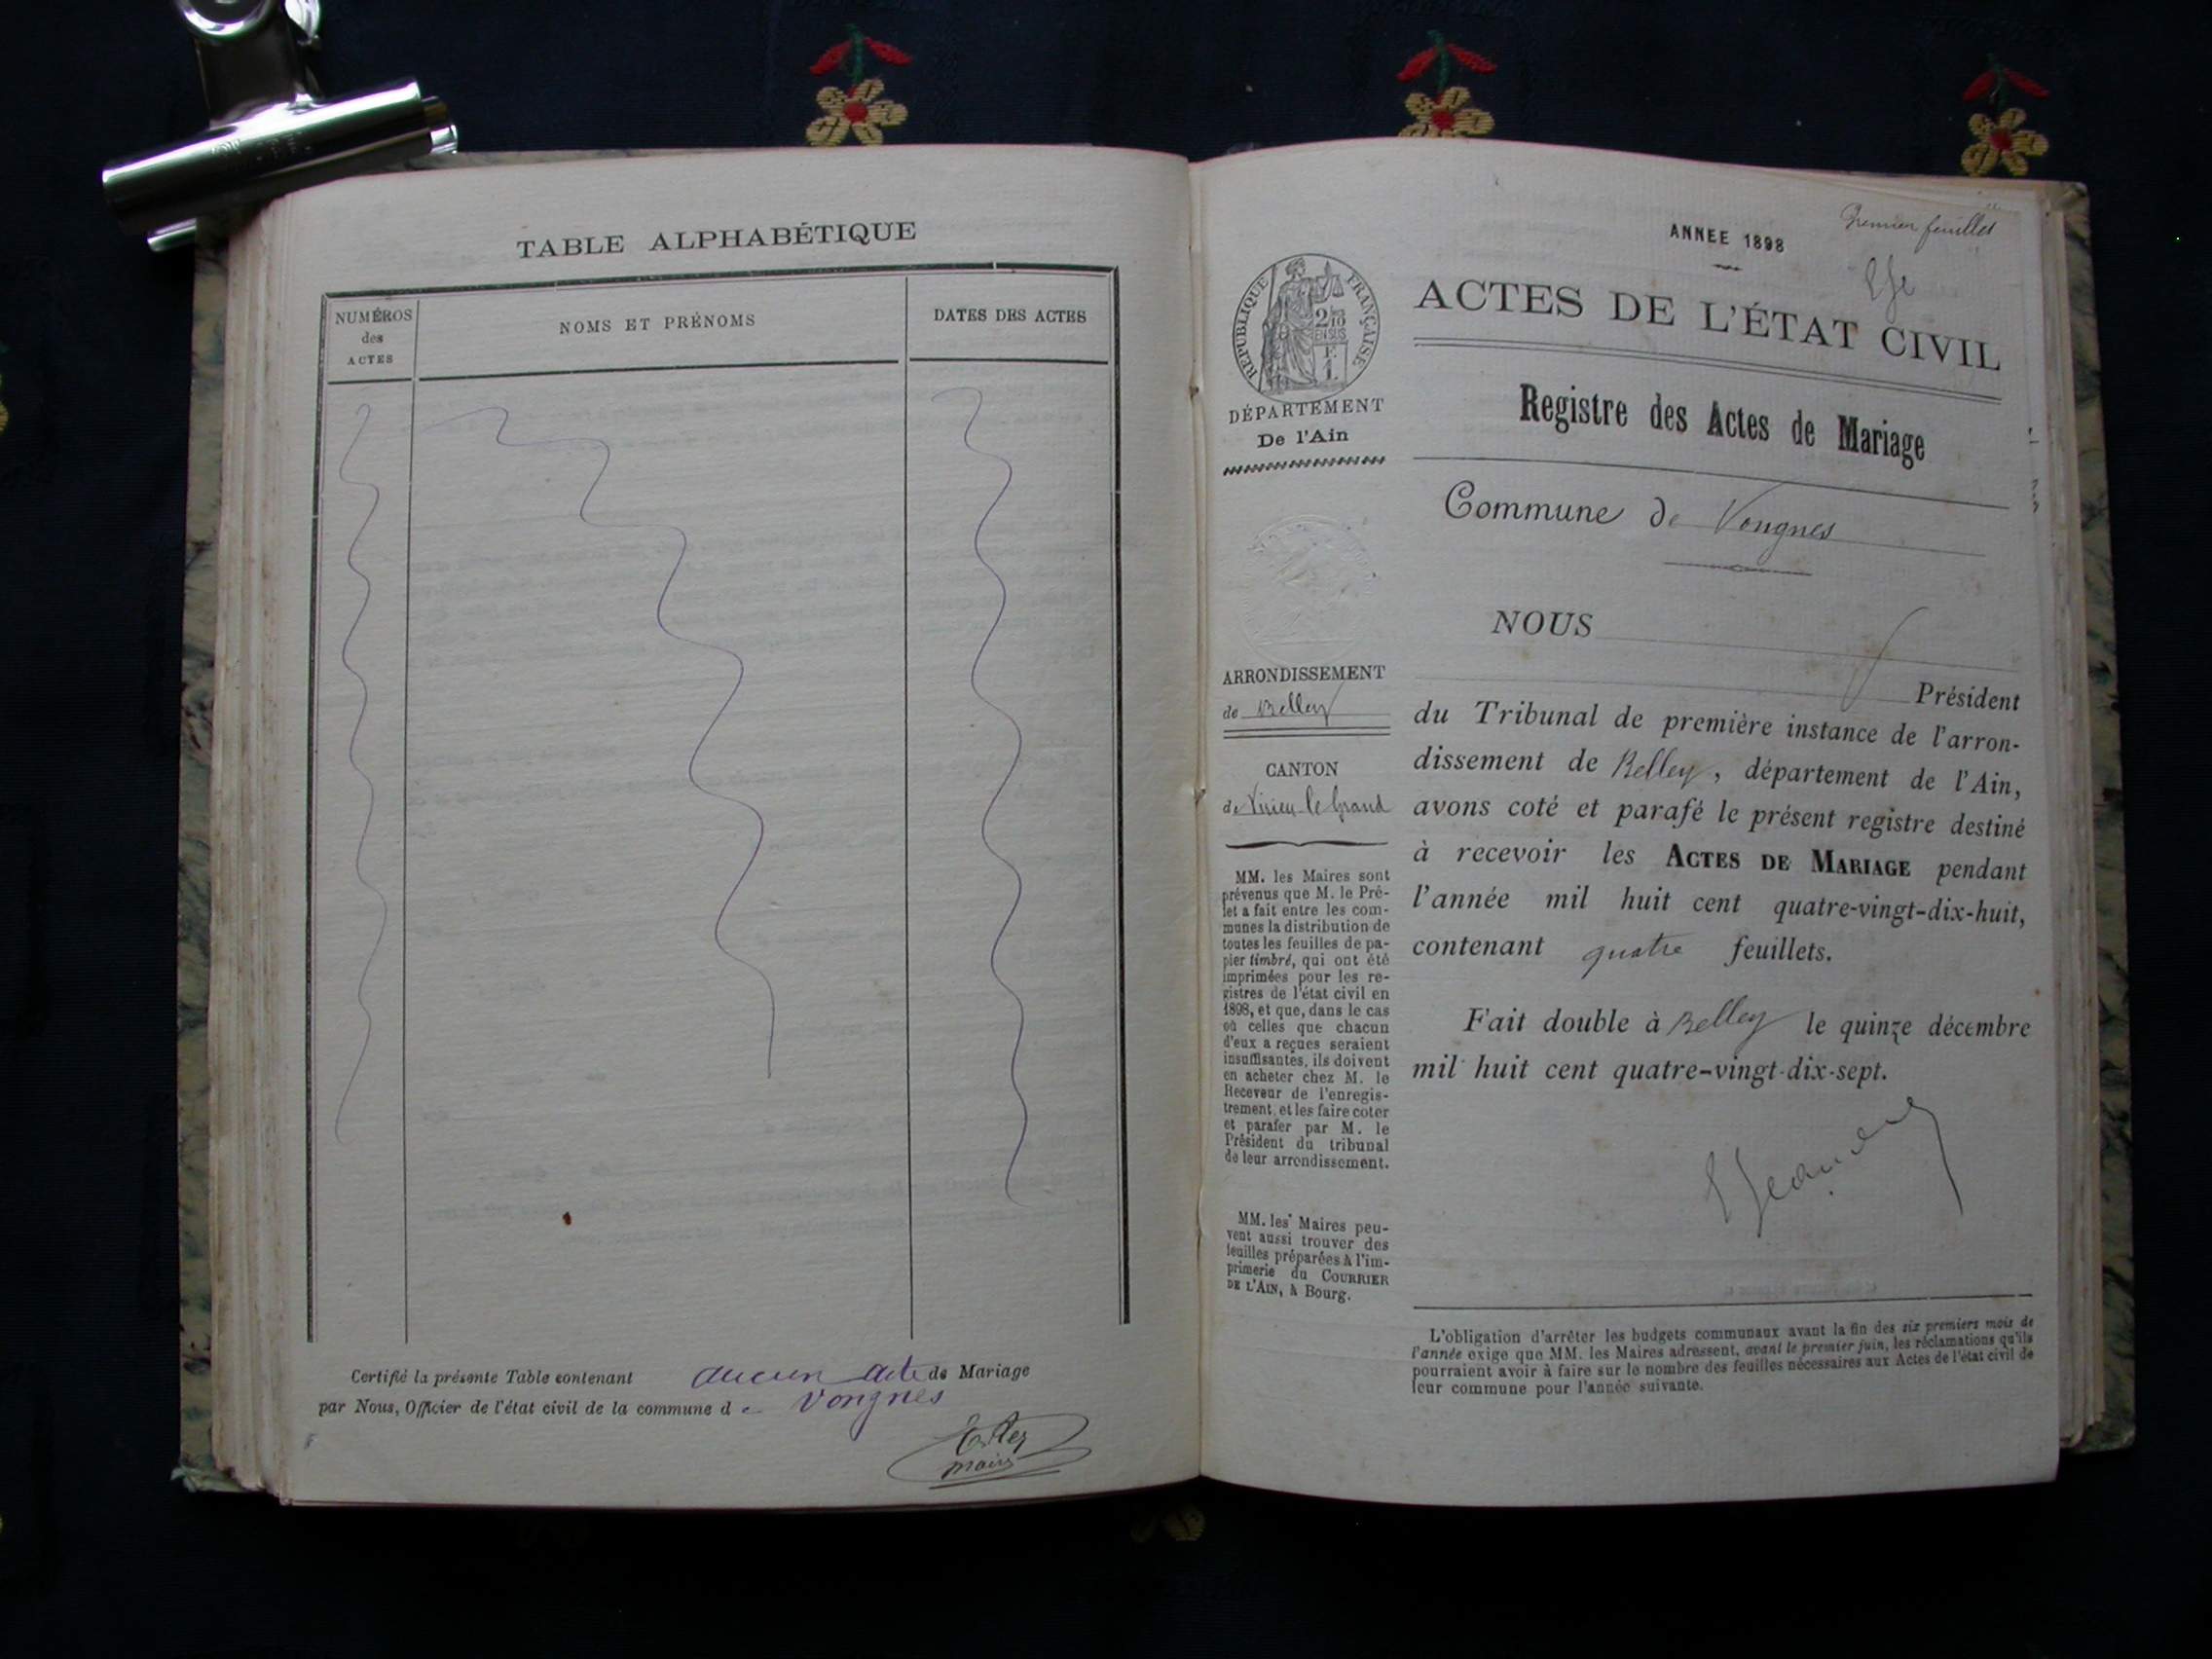 TABLE ALPHABÉTIQUE
NUMÉROS
des
ACTES
NOMS ET PRÉNOMS
DATES DES ACTES
Certifié la présente Table contenant aucun acte de Mariage
par Nous, Officier de l'état civil de la commune de Vongnes
maire
Premier feuillet
ANNÉE 1898
ACTES DE L'ÉTAT CIVIL
Registre des Actes de Mariage
Commune de Vongnes
NOUS
Président
du Tribunal de première instance de l'arron-
dissement de Belley, département de l'Ain,
avons coté et parafé le présent registre destiné
à recevoir les ACTES DE MARIAGE pendant
l'année mil huit cent quatre-vingt-dix-huit,
contenant quatre feuillets.
Fait double à Belley le quinze décembre
mil huit cent quatre-vingt-dix-sept.
L'obligation d'arrêter les budgets communaux avant la fin des six premiers mois de
l'année exige que MM. les Maires adressent, avant le premier juin, les réclamations qu'ils
pourraient avoir à faire sur le nombre des feuilles nécessaires aux Actes de l'état civil de
leur commune pour l'année suivante.
RÉPUBLIQUE FRANÇAISE
2/10
EN SUS
F
1
DÉPARTEMENT
De l'Ain
ARRONDISSEMENT
de Belley
CANTON
de Virieu le Grand
MM. les Maires sont
prévenus que M. le Pré-
fet a fait entre les com-
munes la distribution de
toutes les feuilles de pa-
pier timbré, qui ont été
imprimées pour les re-
gistres de l'état civil en
1898, et que, dans le cas
où celles que chacun
d'eux a reçues seraient
insuffisantes, ils doivent
en acheter chez M. le
Receveur de l'enregis-
trement, et les faire coter
et parafer par M. le
Président du tribunal
de leur arrondissement.
MM. les Maires peu-
vent aussi trouver des
feuilles préparées à l'im-
primerie du COURRIER
DE L'AIN, à Bourg.